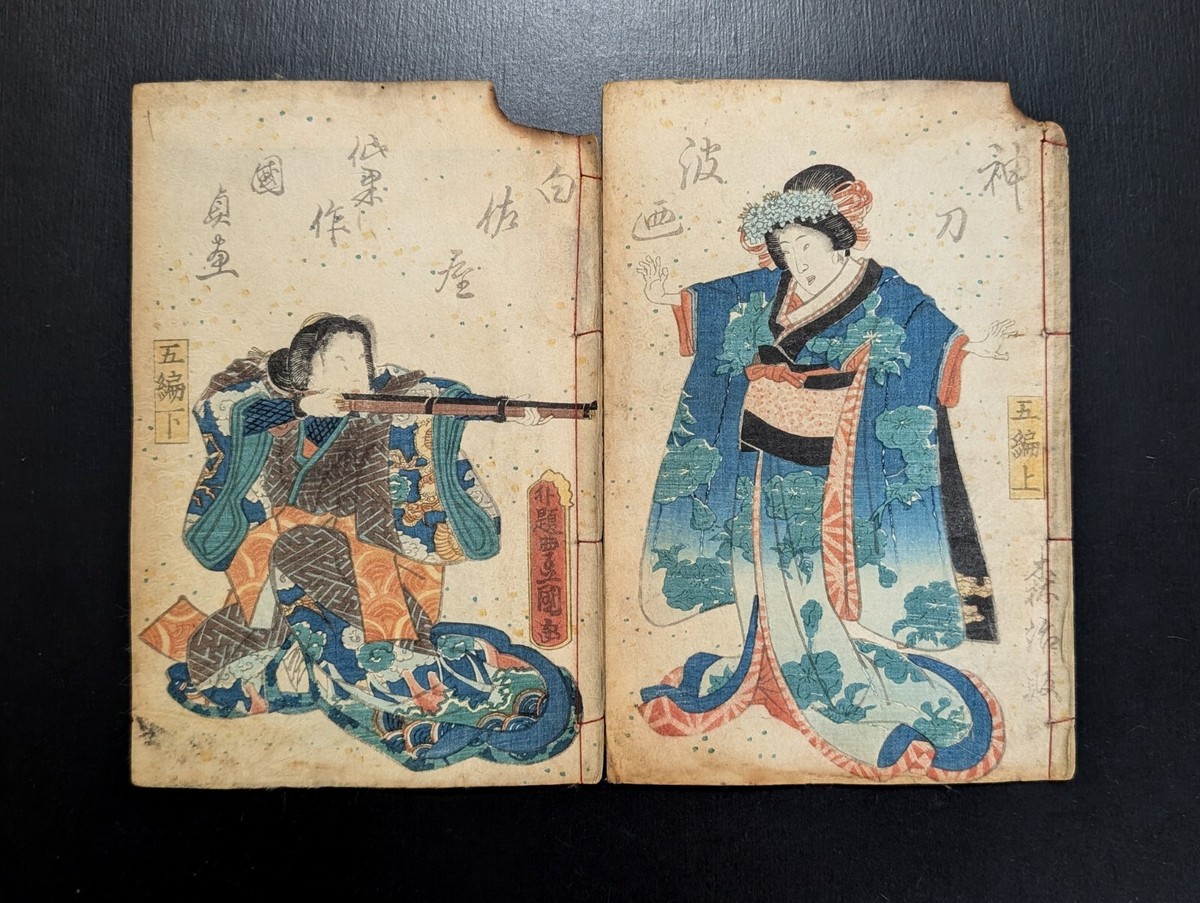 神刀
波画
五編上
森治版
白佐屋
仙果
作
國貞画
五編下
外題豊國画